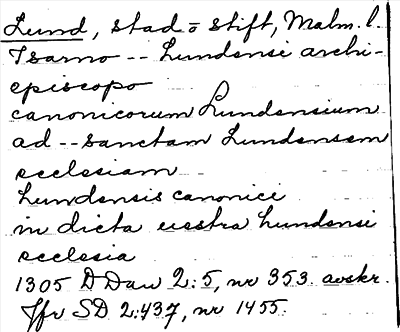 Lund, stad o stift, Malm. l.
Isarno -- Lundensi archi-
episcopo
canonicorum Lundensium
ad -- sanctam Lundensem
ecclesiam
Lundensis canonici
in dicta uestra Lundensi
ecclesia
1305 DDan 2:5, nr 353. avskr.
Jfr SD 2:437, nr 1455.